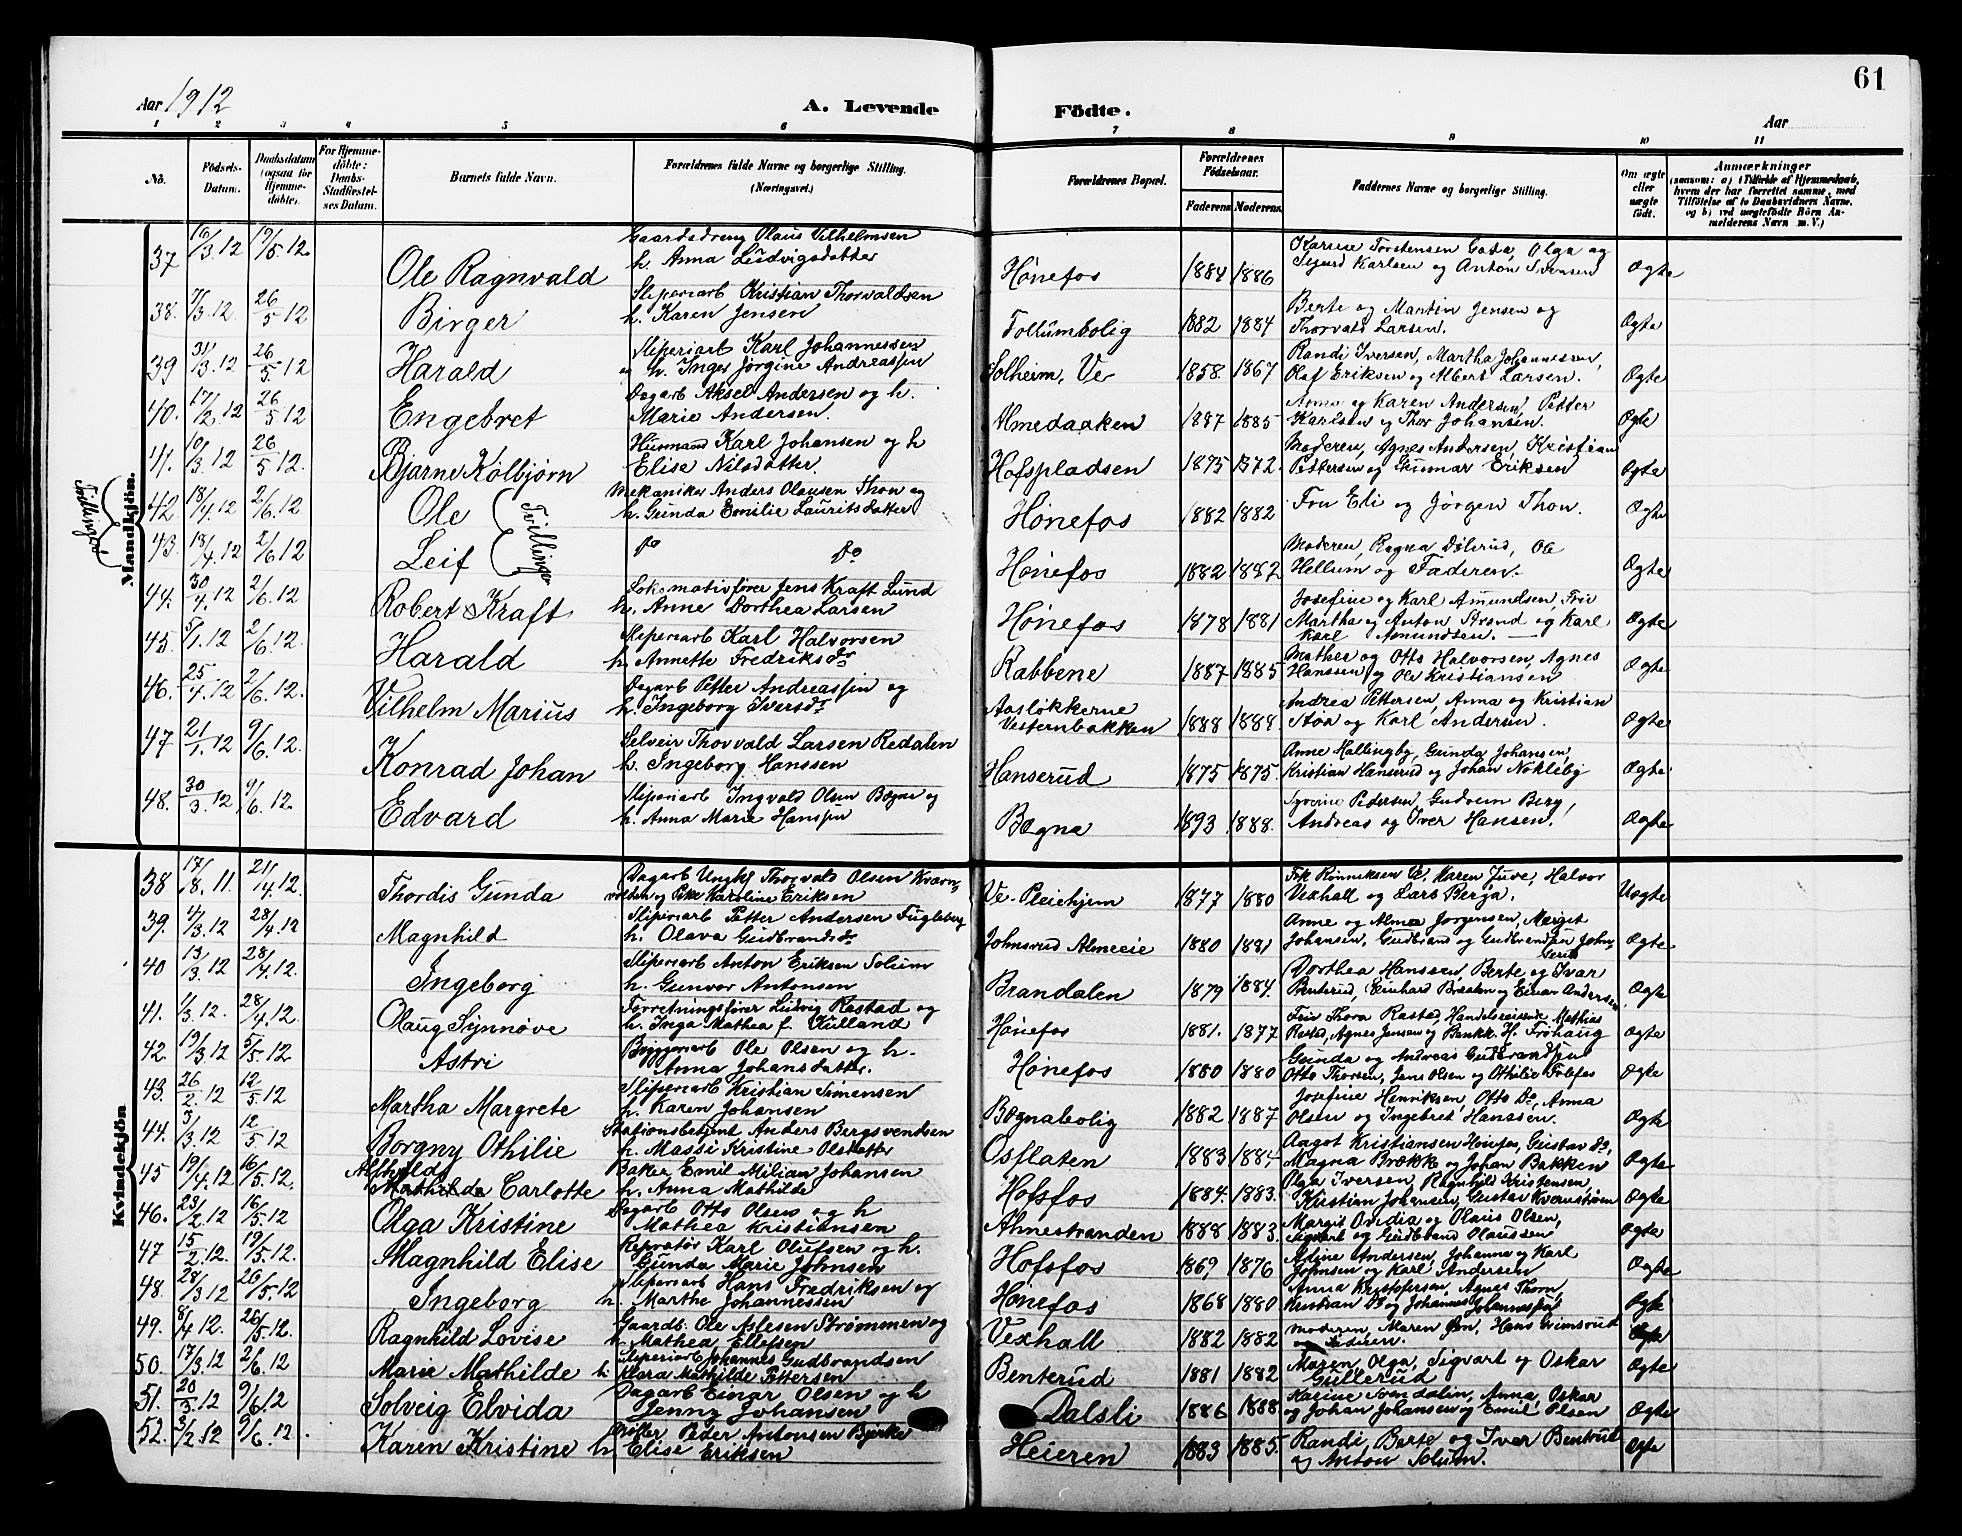 61
Aar 1912
A. Levende
Födte.
Aar
1 2 3 4 5 6 7 8 9 10 11
No.
Födsels-Datum.
Daabsdatum (ogsaa for Hjemmedöbte).
For Hjemmedöbte: Daabs-Stadfæstelses Datum.
Barnets fulde Navn.
Forældrenes fulde Navne og borgerlige Stilling. (Næringsvei.)
Forældrenes Bopæl.
Forældrenes Födselsaar.
Faderens. Moderens.
Faddernes Navne og borgerlige Stilling.
Om ægte eller uægte födt.
Anmærkninger
(saasom: a) i Tilfælde af Hjemmedaab, hvem der har forrettet samme, med Tilföielse af to Daabsvidners Navne, og b) ved uægtefödte Börn Anmelderens Navn m. V.)
Mandkjön.
37 16/3.12 19/5.12 Ole Ragnvald Gaardsdreng Olaus Vilhelmsen h. Anna Ludvigsdatter Hönefos 1884 1886 Karine Torstensen Gata, Olga og Sigurd Karlsen og Anton Svensen Ægte
38. 7/3.12 26/5 12 Birger Sliperiarb Kristian Thorvaldsen h. Karen Jensen Follumbolig 1882 1884 Berte og Martin Jensen og Thorvald Larsen. Ægte
39 31/3.12 26/5.12 Harald Sliperiarb Karl Johannessen og h. Inger Jørgine Andreassen Solheim, Ve 1858. 1867 Randi Iversen, Martha Johannessen, Olaf Eriksen og Albert Larsen. Ægte
40. 17/2.12 26/5 12 Engebret Dagarb Aksel Andersen og h. Marie Andersen. Almedaaken 1887 1885 Anna og Karen Andersen, Petter Karlsen og Thor Johansen. Ægte
41. 10/3.12 26/5 12. Bjarne Kolbjørn Husmand Karl Johansen og h Elise Nilsdatter. Hofspladsen 1875 1872. Moderen, Agnes Andersen, Kristian Pettersen og Gunnar Eriksen Ægte
Tvillinger
42. 18/4.12 2/6.12 Ole Tvillinger Mekaniker Anders Olausen Thon og h. Gunda Emilie Lauritsdatter Hønefos 1882 1882 Fru Eli og Jørgen Thon. Ægte
43. 18/4.12 2/6 12 Leif do do Hønefos 1882 1882 Moderen, Ragna Dølerud, Ole Hellum og Faderen. Ægte
44. 30/4.12 2/6.12 Robert Kraft Lokomotivfører Jens Kraft Lund h. Anne Dorthea Larsen Hønefos 1878 1881 Josefine og Karl Amundsen, Fru Martha og Anton Strand og Karl Karl Amundsen. Ægte
45. 5/1.12 2/6.12. Harald Sliperiarb Karl Halvorsen h. Annette Fredriksdr Rabbene 1887 1885 Mathea og Otto Halvorsen, Agnes Hanssen og Ole Kristiansen Ægte
46. 25/4.12 2/6.12. Vilhelm Marius Dagarb Petter Andreassen og h. Ingeborg Iversdr Aasløkkerne Vesternbakken 1888 1888 Andrea Pettersen, Anna og Kristian Støa og Karl Andersen. Ægte
47 21/1.12 9/6.12. Konrad Johan Selveier Thorvald Larsen Redalen h. Ingeborg Hanssen Hanserud 1875 1875 Anne Hallingby, Gunda Johansen, Kristian Hanserud og Johan Nokleby Ægte
48. 30/3.12 9/6.12. Edvard Sliperiarb Ingvald Olsen Bægna og h. Anna Marie Hanssen Bægna 1893 1888. Syverine Pedersen, Gudvem Berg, Andreas og Iver Hansen. Ægte
Kvindekjön
38 17/8.11 21/4.12. Thordis Gunda Dagarb Ungkl Thorvald Olsen Kværnvolden og Pike Karoline Eriksen Ve. Pleiehjem 1877 1880 Frk Rönneksen Ve, Karen Juve, Halvor Vexhall og Lars Berga. Uægte
39. 4/3.12 28/4.12 Magnhild Sliperiarb Petter Andersen Fugleberg h. Olava Gudbrandsdr Johnsrud Almeeie 1880 1881 Anne og Alma Jørgensen, Margit Johansen, Gudbrand og Gudbrandsen Ægte
40 13/3.12 28/4.12. Ingeborg Sliperiarb Anton Eriksen Solum h. Gunvor Antonsen Brandalen 1879 1884. Dorthea Hanssen, Berte og Ivar Benterud, Einhard Braaten og Einar Andersen Ægte
41. 1/3.12. 28/4.12. Olaug Synnøve Forretningsfører Ludvig Rastad og h. Inga Mathea f. Kulland Hønefos 1881. 1877 Fru Thora Rastad, Handelsreisende Mathias Rastad, Agnes Jensen og Bankk. H. Frøhaug Ægte
42. 19/3.12 5/5.12 Astri Bryggeriarb Ole Olsen og h. Anna Johansdatter. Hønefos 1880 1880 Gunda og Andreas Gudbrandsen Otto Thorsen, Jens Olsen og Othilie Folefos Ægte
43. 26/2.12 12/5 12 Martha Margrete Sliperiarb Kristian Simensen h. Karen Johansen Bægnabolig 1882 1887 Josefine Henriksen, Otto Do, Anna Olsen og Ingebret Hanssen. Ægte
44. 3/3.12 12/5 12 Borgny Othilie Stationsbetjent Anders Bergsvendsen h. Massi Kristine Olsdatter Osflaten 1883 1884 Aagot Kristiansen Hønefos, Gustav do, Magna Brække og Johan Bakken Ægte
45 19/4.12 16/5.12. Mathilde Carlotte Baker Emil Milian Johansen h. Anna Mathilde Hofsfos 1884. 1883. Olga Iversen, Ragnhild Kristensen, Kristian Johansen, Gustav Kvernstrøm Ægte
46. 23/2.12 16/5.12 Olga Kristine Dagarb Otto Olsen og h Mathea Kristiansen Almestranden 1888 1883. Margit Ovidia og Olaus Olsen, Sigvart og Gudbrand Olaussen Ægte
47 15/2.12. 19/5.12. Magnhild Elise Reparatør Karl Olufsen og h. Gunda Marie Johnsen Hofsfos 1869 1876 Adine Andersen, Johanna og Karl Johnsen og Karl Andersen Ægte
48. 28/3 12 26/5.12 Ingeborg Sliperiarb Hans Fredriksen og h. Marthe Johannessen Hønefos 1868 1880 Anna Kristofersen, Agnes Thorn, Kristian Do og Johannes Johannessen Ægte
49. 8/4 12. 26/5.12. Ragnhild Lovise Gaardb. Ole Aslesen Strømmen og h. Mathea Ellefsen Vexhall 1882 1882 Moderen, Maren Øen, Hans Grimsrud og Faderen. Ægte
50. 17/3.12 2/6.12 Marie Mathilde Sliperiarb Johannes Gudbrandsen h Klara Mathilde Pettersen Benterud 1881 1882 Maren, Olga, Sigvart og Oskar Gullerud Ægte
51. 20/3.12 9/6.12 Solveig Elvida Dagarb Einar Olsen og h Jenny Johansen Dalsli 1886 1888. Karine Svendalin, Anna, Oskar og Johan Johansen og Emil Olsen Ægte
52. 3/2.12 9/6.12. Karen Kristine Drifter Peder Antonsen Bjerke h Elise Eriksen Heieren 1883 1885. Randi, Berte og Iver Bentrud og Anton Solum. Ægte